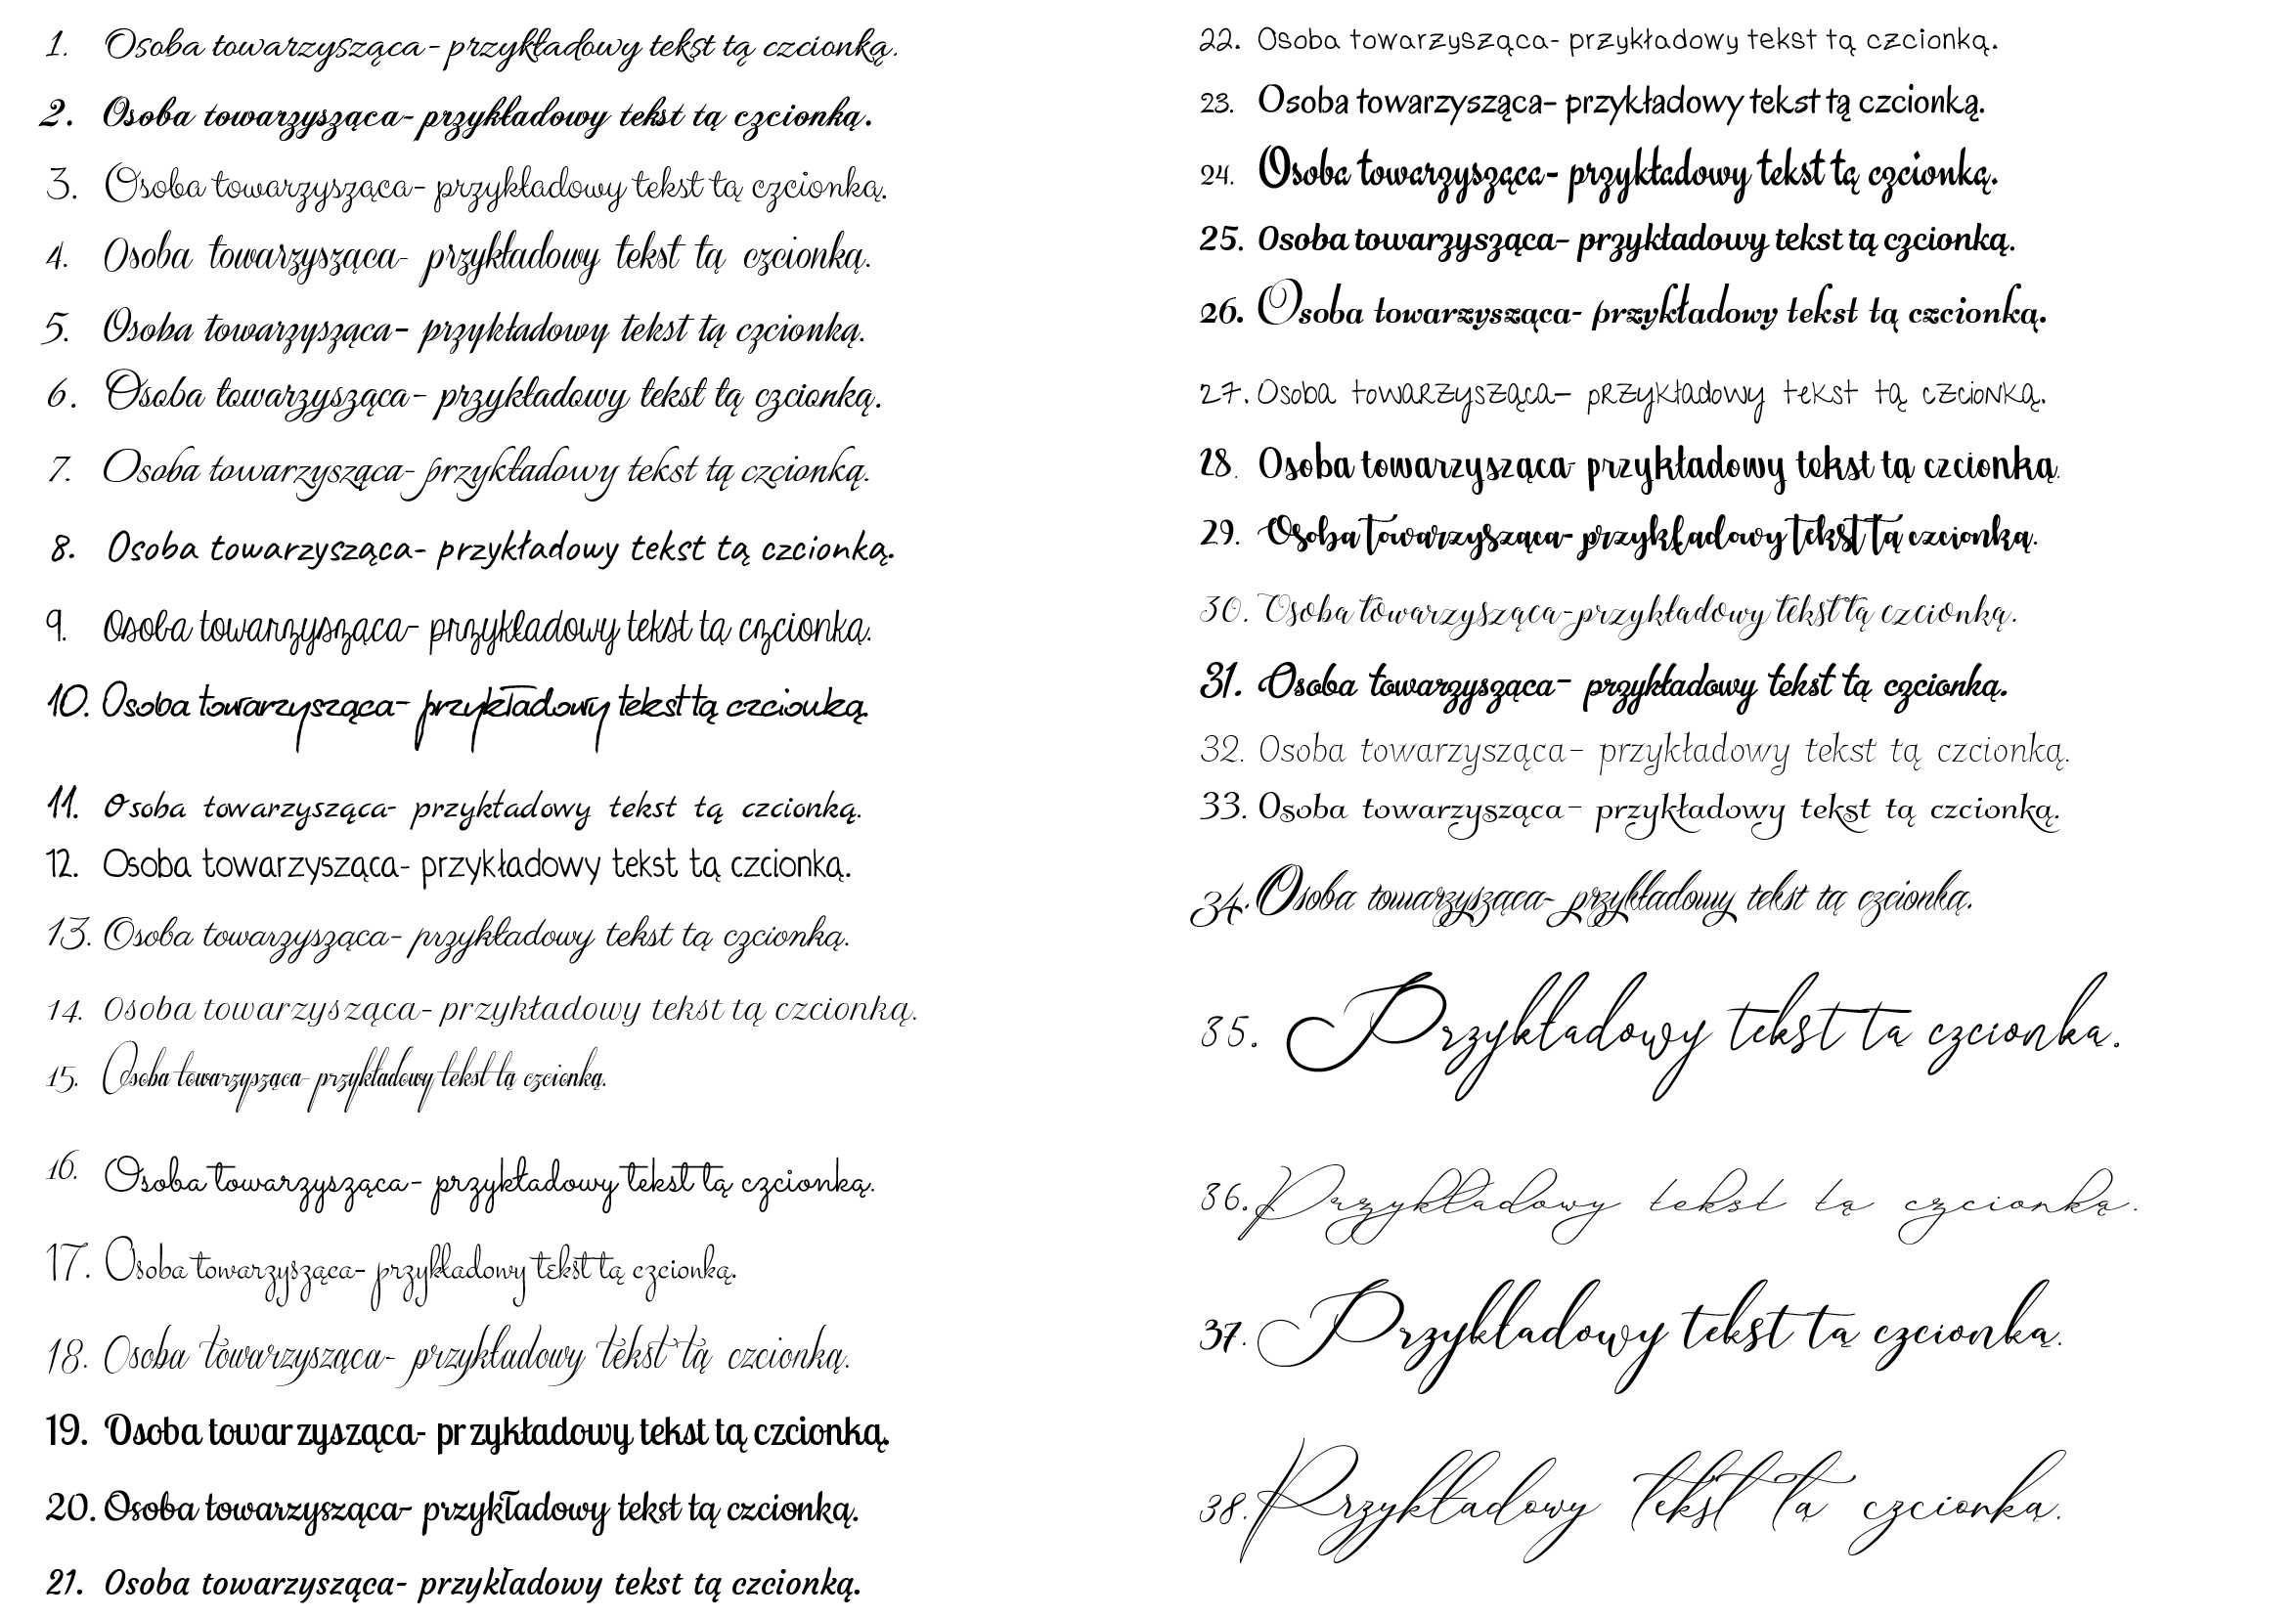 1. Osoba towarzysząca- przykładowy tekst tą czcionką.
2. Osoba towarzysząca- przykładowy tekst tą czcionką.
3. Osoba towarzysząca- przykładowy tekst tą czcionką.
4. Osoba towarzysząca- przykładowy tekst tą czcionką.
5. Osoba towarzysząca- przykładowy tekst tą czcionką.
6. Osoba towarzysząca- przykładowy tekst tą czcionką.
7. Osoba towarzysząca- przykładowy tekst tą czcionką.
8. Osoba towarzysząca- przykładowy tekst tą czcionką.
9. Osoba towarzysząca- przykładowy tekst tą czcionką.
10. Osoba towarzysząca- przykładowy tekst tą czcionką.
11. Osoba towarzysząca- przyktadowy tekst tą czcionką.
12. Osoba towarzysząca- przykładowy tekst tą czcionką.
13. Osoba towarzysząca- przykładowy tekst tą czcionką.
14. Osoba towarzysząca- przykładowy tekst tą czcionką.
15. Osoba towarzysząca- przykładowy tekst tą czcionką.
16. Osoba towarzysząca- przykładowy tekst tą czcionką.
17. Osoba towarzysząca- przykładowy tekst tą czcionką.
18. Osoba towarzysząca- przykładowy tekst tą czcionką.
19. Osoba towarzysząca- przykładowy tekst tą czcionką.
20. Osoba towarzysząca- przykładowy tekst tą czcionką.
21. Osoba towarzysząca- przykładowy tekst tą czcionką.
22. Osoba towarzysząca- przykładowy tekst tą czcionką.
23. Osoba towarzysząca- przykładowy tekst tą czcionką.
24. Osoba towarzysząca- przykładowy tekst tą czcionką.
25. Osoba towarzysząca- przykładowy tekst tą czcionką.
26. Osoba towarzysząca- przykładowy tekst tą czcionką.
27. Osoba towarzysząca- przykładowy tekst tą czcionką.
28. Osoba towarzysząca- przykładowy tekst tą czcionką.
29. Osoba towarzysząca- przykładowy tekst tą czcionką.
30. Osoba towarzysząca- przykładowy tekst tą czcionką.
31. Osoba towarzysząca- przykładowy tekst tą czcionką.
32. Osoba towarzysząca- przykładowy tekst tą czcionką.
33. Osoba towarzysząca- przykładowy tekst tą czcionką.
34. Osoba towarzysząca- przykładowy tekst tą czcionką.
35. Przykładowy tekst ta czcionka.
36. Przykładowy tekst tą czcionką.
37. Przykładowy tekst tą czcionką.
38. Przykładowy tekst tą czcionką.